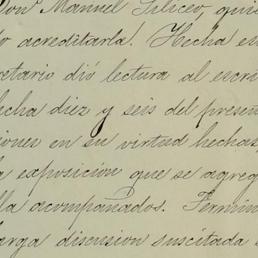 Don Manuel Siliceo, qui
lo acreditarla. Hecha es
retario dió lectura al escri
fecha diez y seis del presen
iones en su virtud hechas
a exposicion que se agreg
lla acompañados. Termin
larga discusion suscitada